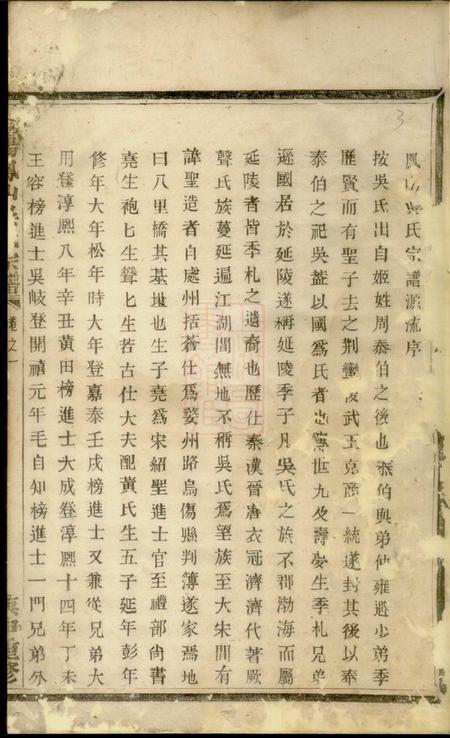 鳳山吳氏宗譜源流序
按吳氏出自姬姓周泰伯之後也泰伯與弟仲雍避少弟季
歷賢而有聖子去之荆蠻後武王克商一統遂封其後以奉
泰伯之祀吳葢以國爲氏者也傳世九及壽夢生季札兄弟
遜國居於延陵遂稱延陵季子凡吳氏之族不郡渤海而屬
延陵者皆季札之遺裔也歷仕秦漢晉唐衣冠濟濟代著厥
聲氏族蔓延遍江湖間無地不稱吳氏爲望族至大宋間有
諱聖造者自處州括蒼仕爲婺州路烏傷縣判簿遂家焉地
曰八里橋其基址也生子堯爲宋紹聖進士官至禮部尙書
堯生袍匕生聳匕生若古仕大夫配黃氏生五子延年彭年
修年大年松年時大年登嘉泰壬戌榜進士又兼從兄弟大
用登淳熙八年辛丑黃田榜進士大成登淳熙十四年丁未
王容榜進士吳岐登開禧元年毛自知榜進士一門兄弟外
宗譜
卷之一
重修
3